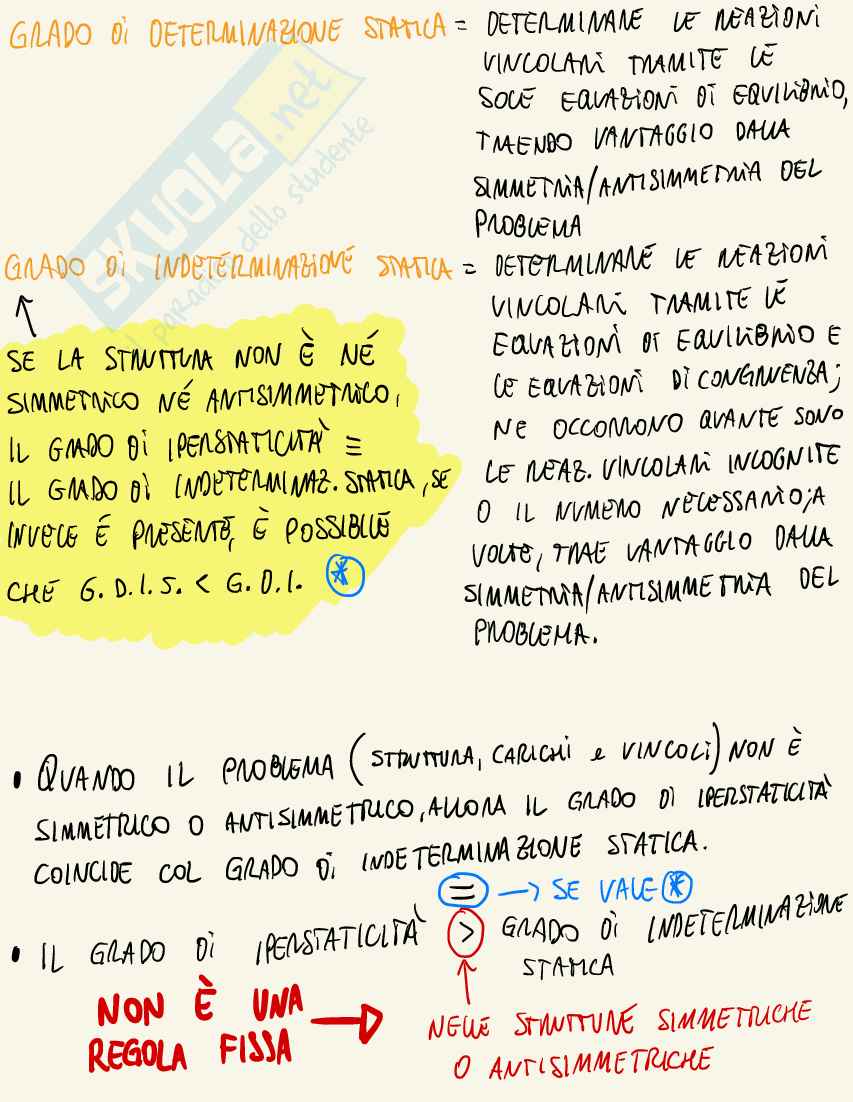 GRADO DI DETERMINAZIONE STATICA = DETERMINARE LE REAZIONI
VINCOLARI TRAMITE LE
SOLE EQUAZIONI DI EQUILIBRIO,
TRAENDO VANTAGGIO DALLA
SIMMETRIA/ANTISIMMETRIA DEL
PROBLEMA
SKUOLA.net
il paradiso dello studente
GRADO DI INDETERMINAZIONE STATICA = DETERMINARE LE REAZIONI
VINCOLARI TRAMITE LE
EQUAZIONI DI EQUILIBRIO E
LE EQUAZIONI DI CONGRUENZA;
NE OCCORRONO QUANTE SONO
LE REAZ. VINCOLARI INCOGNITE
O IL NUMERO NECESSARIO; A
VOLTE, TRAE VANTAGGIO DALLA
SIMMETRIA/ANTISIMMETRIA DEL
PROBLEMA.
SE LA STRUTTURA NON È NÉ
SIMMETRICO NÉ ANTISIMMETRICO,
IL GRADO DI IPERSTATICITÀ ≡
IL GRADO DI INDETERMINAZ. STATICA, SE
INVECE É PRESENTE, È POSSIBILE
CHE G.D.I.S. < G.D.I. *
• QUANDO IL PROBLEMA (STRUTTURA, CARICHI e VINCOLI) NON È
SIMMETRICO O ANTISIMMETRICO, ALLORA IL GRADO DI IPERSTATICITÀ
COINCIDE COL GRADO DI INDETERMINAZIONE STATICA.
= → SE VALE *
• IL GRADO DI IPERSTATICITÀ > GRADO DI INDETERMINAZIONE
STATICA
NON È UNA
REGOLA FISSA
NELLE STRUTTURE SIMMETRICHE
O ANTISIMMETRICHE